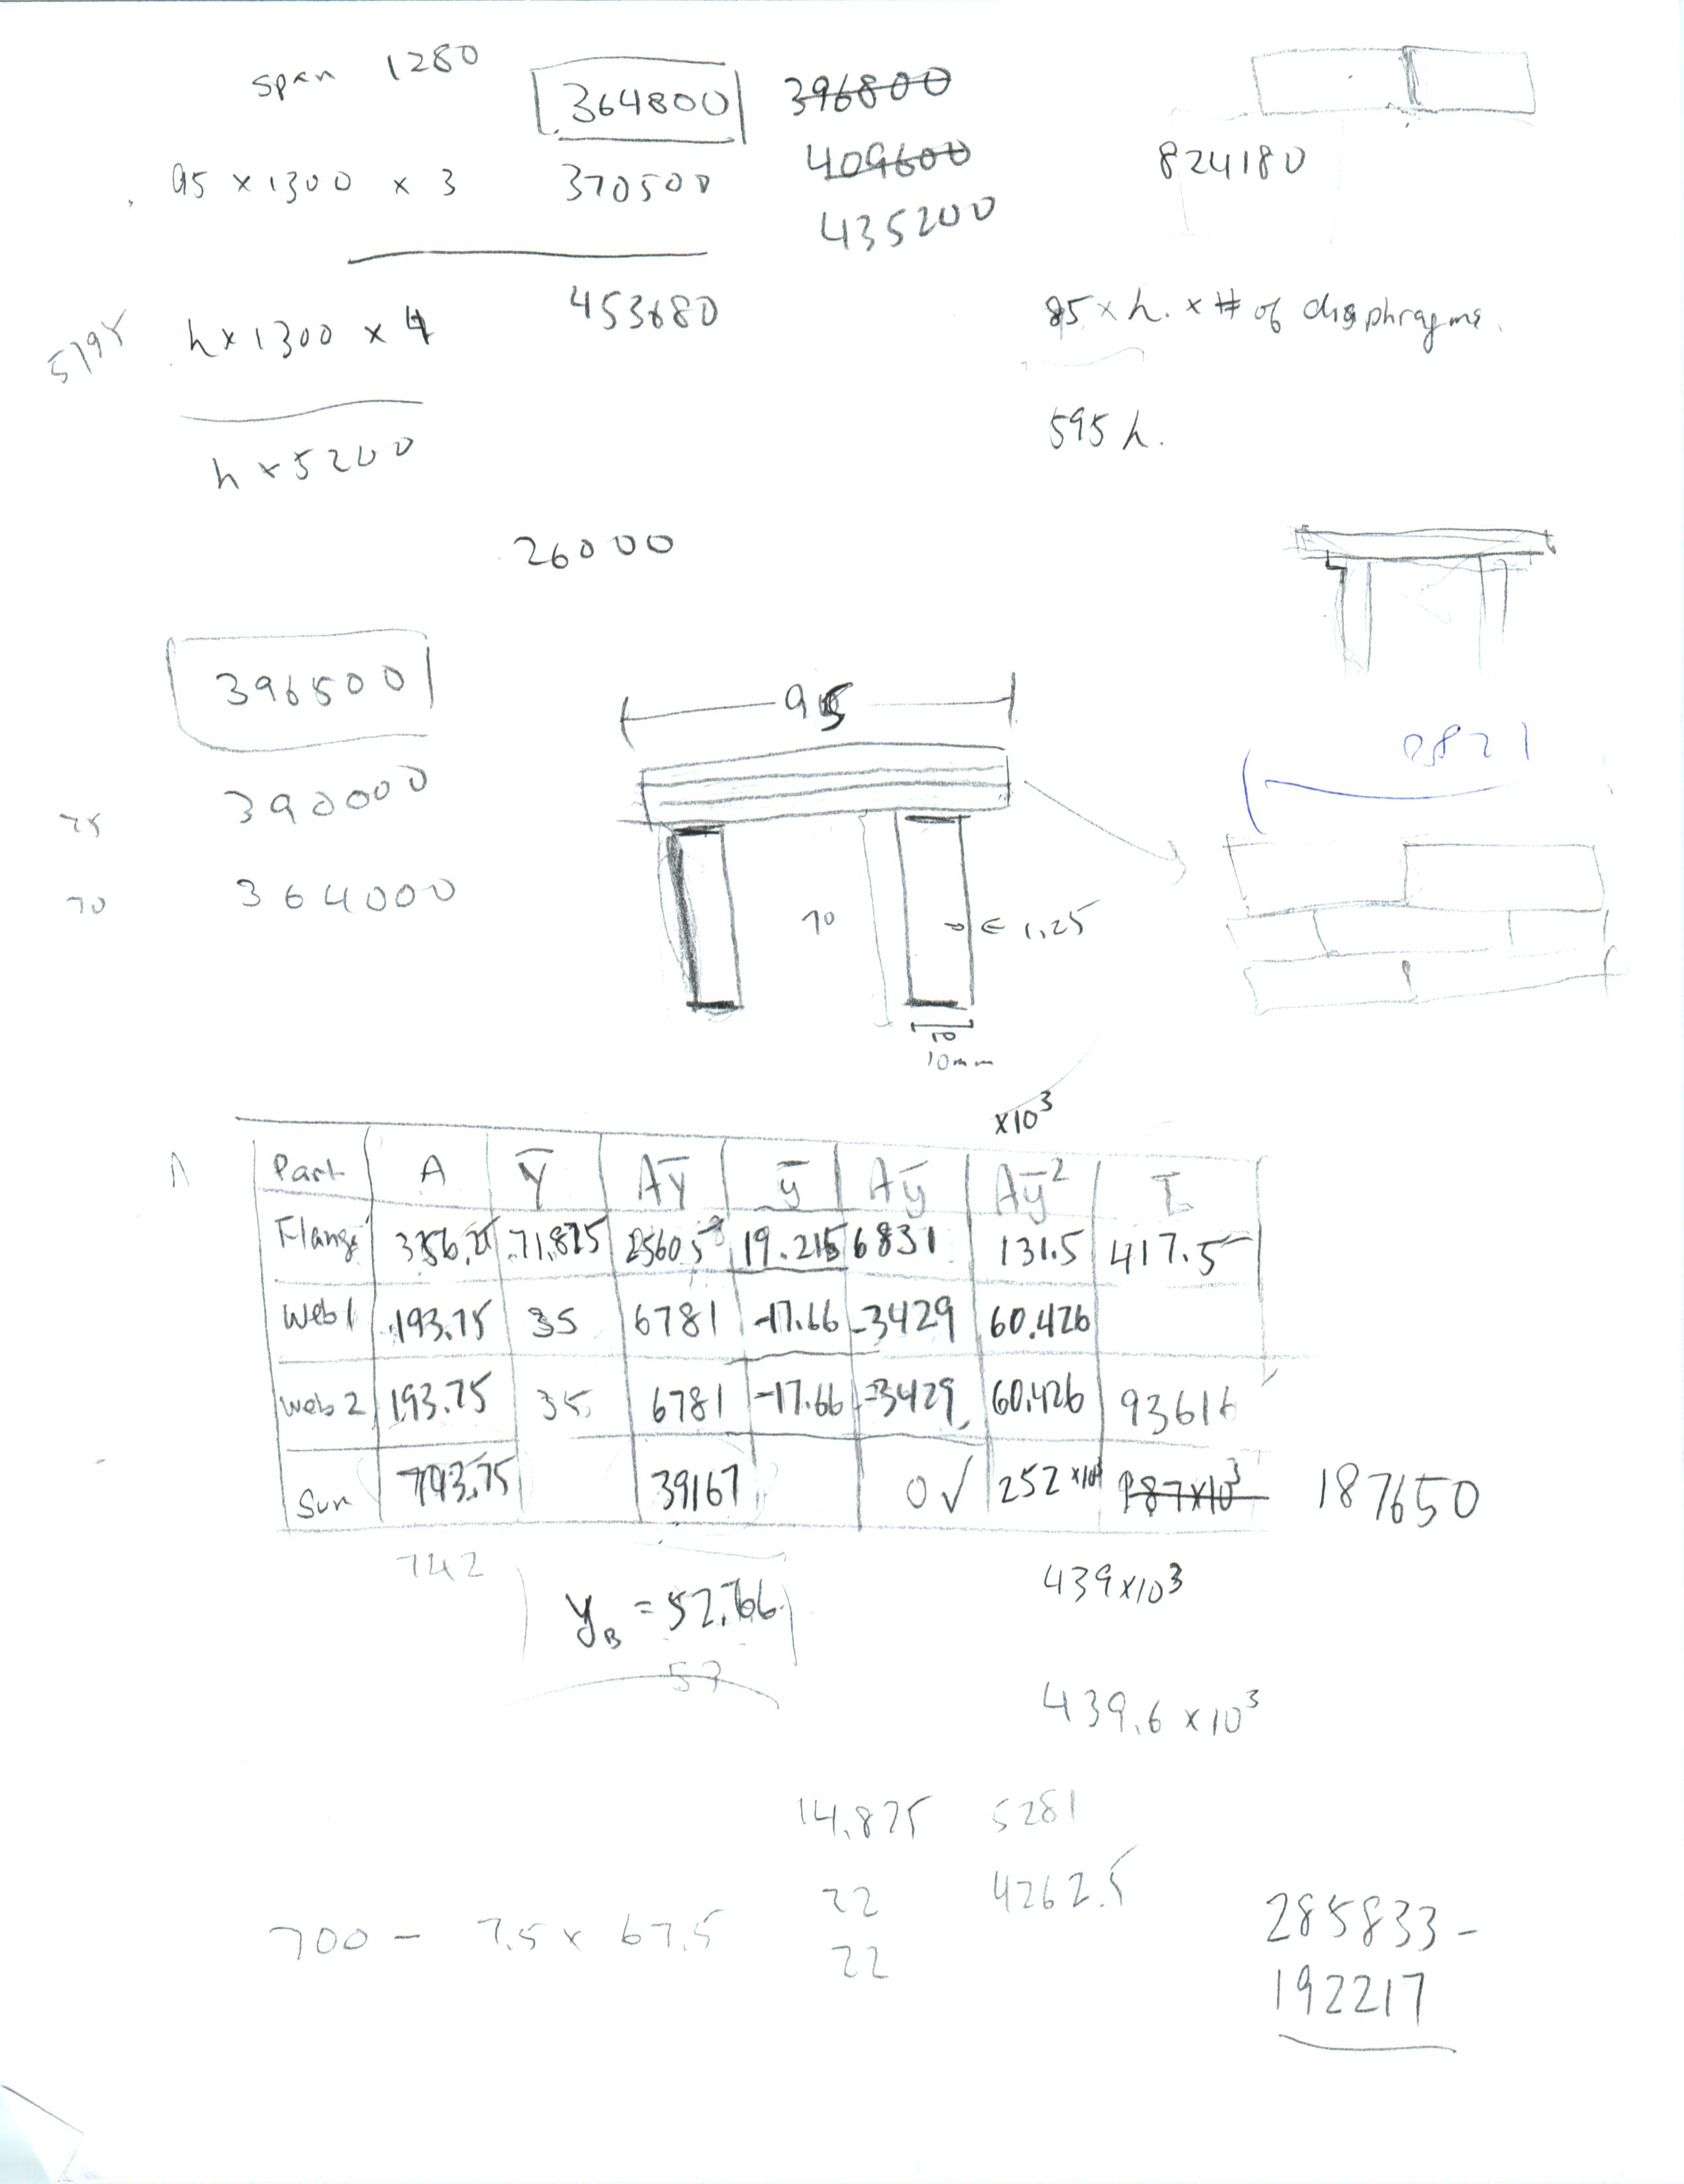 span 1280
364800 396800
409600
95 × 1300 × 3 370500
435200
824180
h × 1300 × 4 453680
85 × h. × # of diaphragms.
h × 5200
595 h.
26000
396500
95
390000
75
70 364000
70
← 1.25
10
10mm
×10³
Part A Y̅ AY̅ y̅ Ay̅ Ay̅² I
Flange 356.25 71.875 25605 19.215 6831 131.5 417.5
Web 1 193.75 35 6781 -17.66 -3429 60.426
Web 2 193.75 35 6781 -17.66 -3429 60.426 93616
Sum 743.75 39167 0 ✓ 252 ×10³ 187×10³ 187650
742
439×10³
y_B = 52.66
57
439.6 × 10³
14.875 5281
22 4262.5
700 - 7.5 × 67.5
22
285833 -
192217